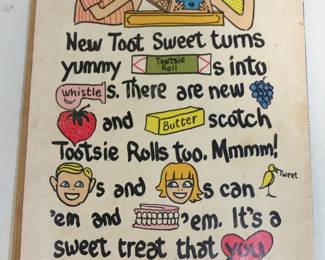 New Toot Sweet turns
yummy Tootsie Roll s into
whistle s. There are new
and Butter scotch
Tootsie Rolls too. Mmmm!
s and s can Tweet
'em and 'em. It's a
sweet treat that you